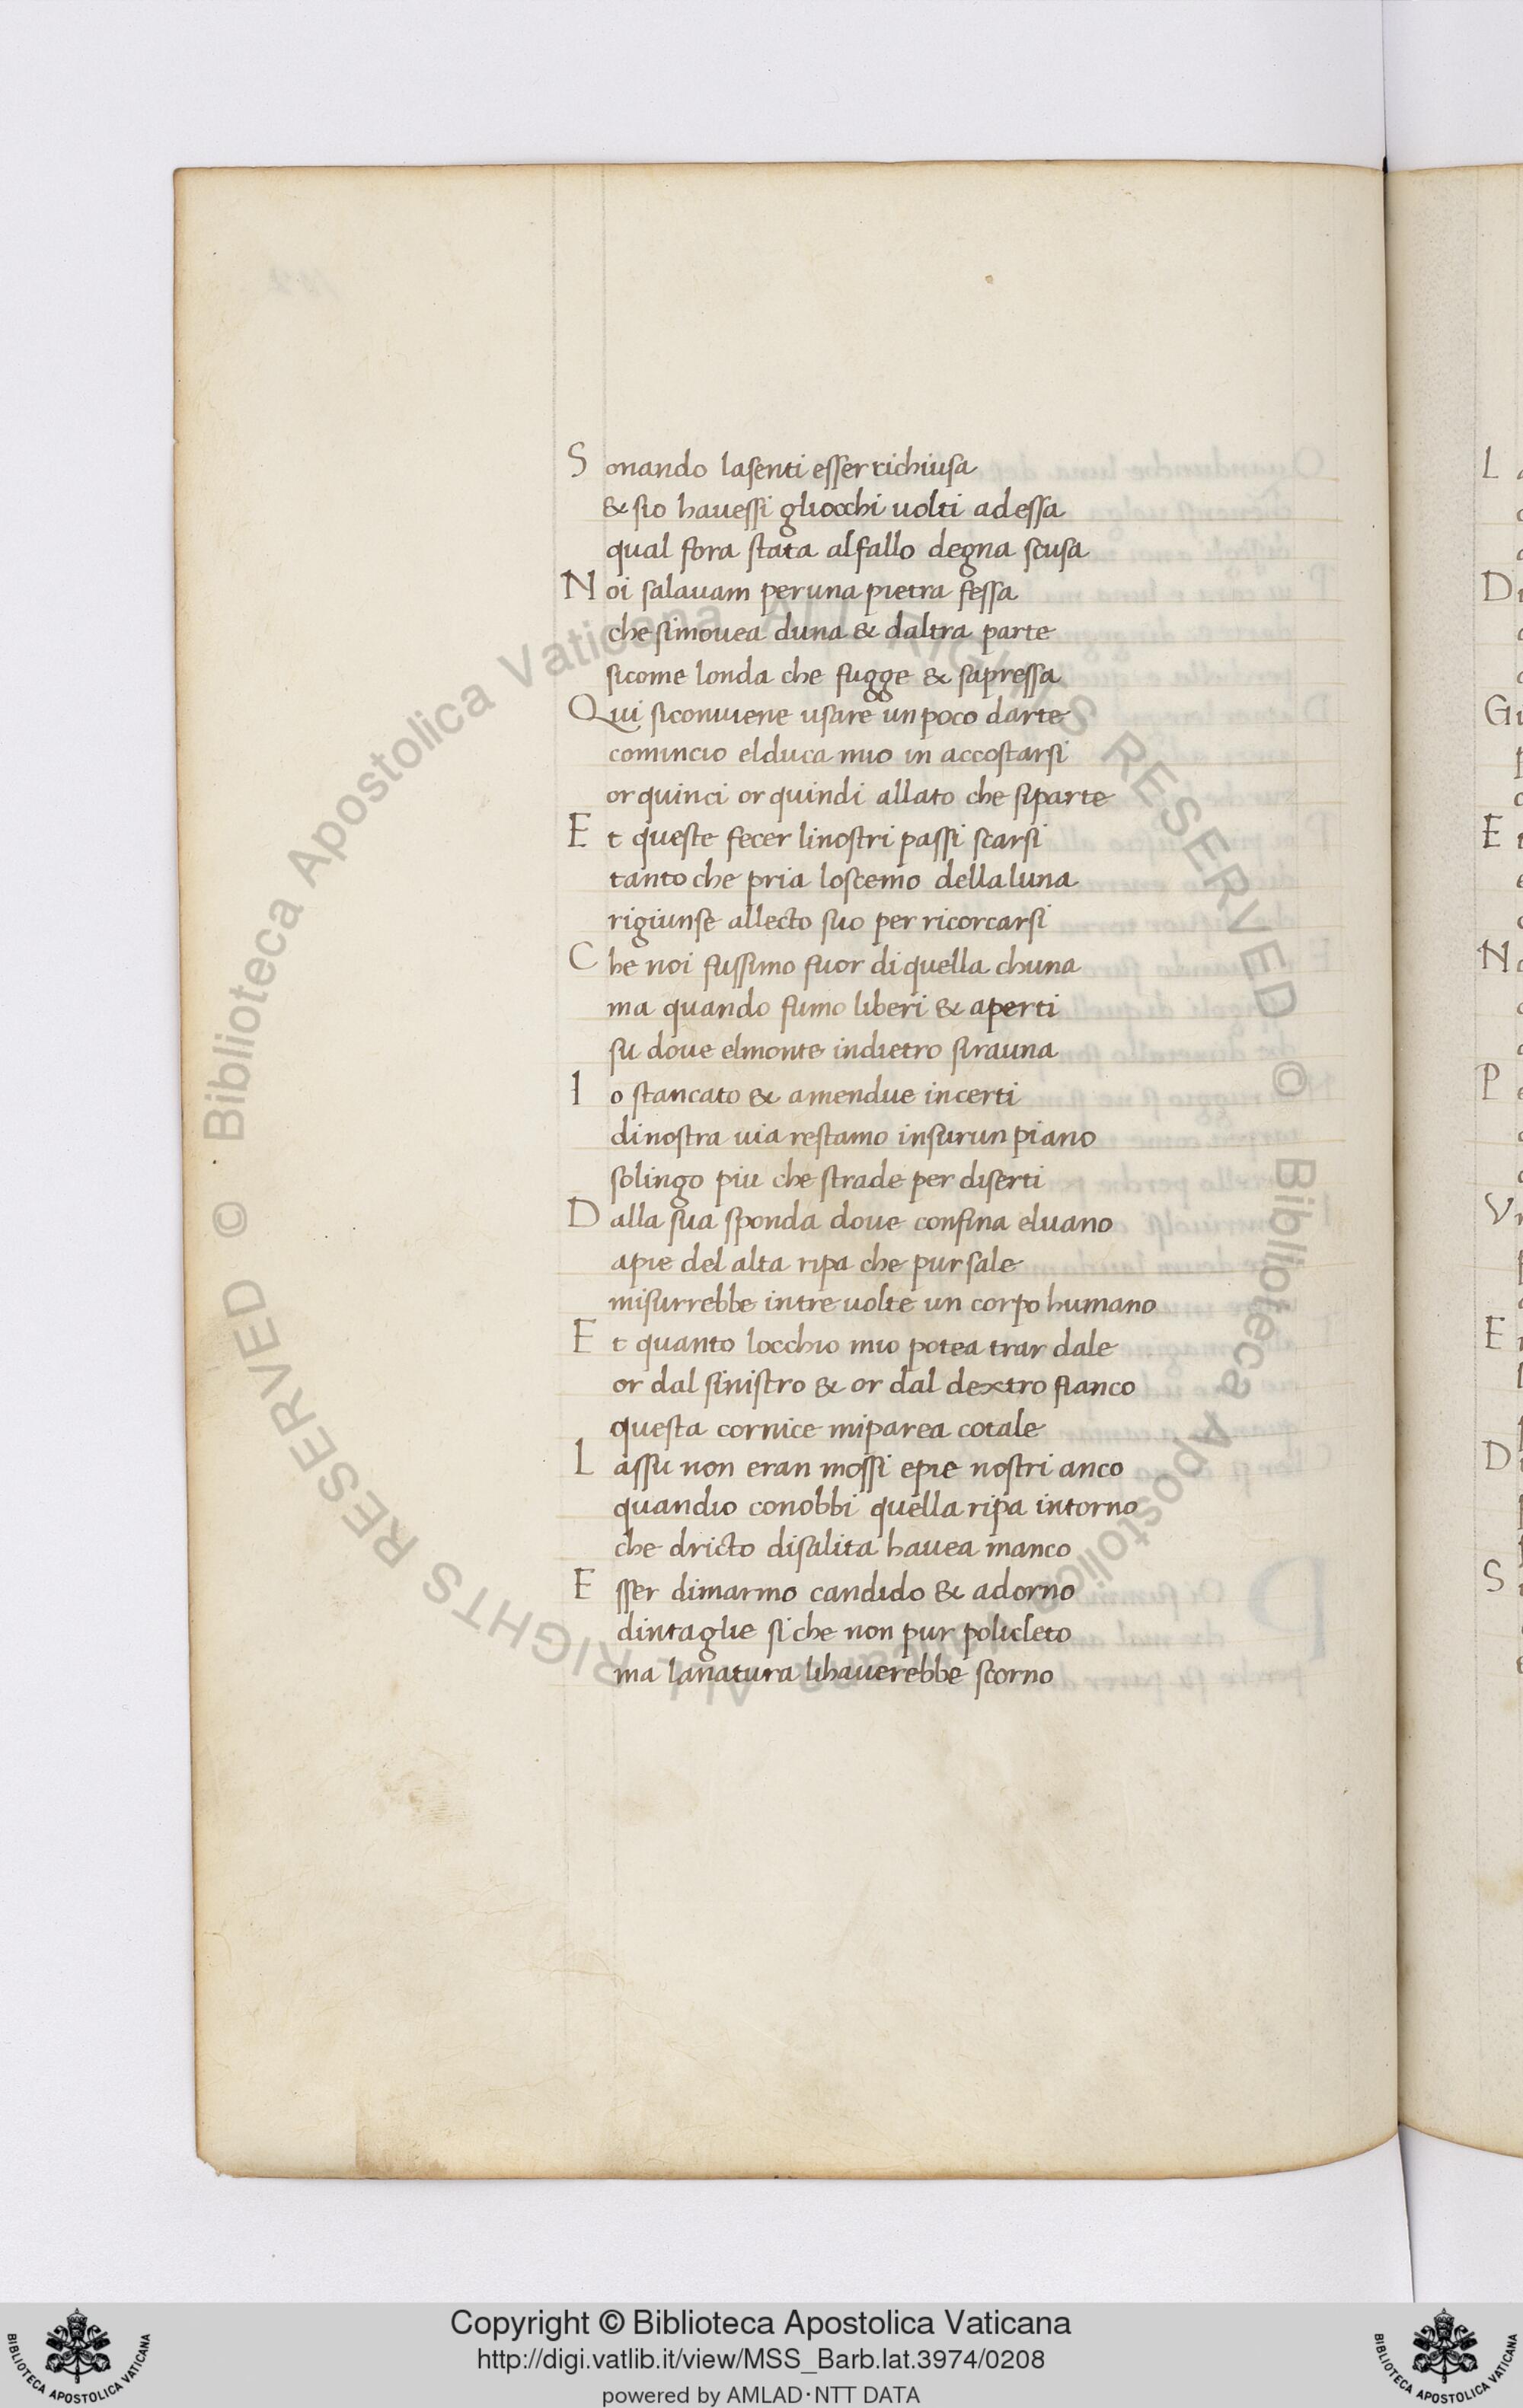 Sonando lasenti esser richiusa
& sio hauessi gliocchi uolti adessa
qual fora stata alfallo degna scusa
Noi salauam peruna pietra fessa
che simouea duna & daltra parte
sicome londa che fugge & sapressa
Qui siconuiene usare unpoco darte
comincio elduca mio in accostarsi
or quinci or quindi allato che siparte
Et queste fecer linostri passi scarsi
tanto che pria loscemo dellaluna
rigiunse allecto suo per ricorcarsi
Che noi fussimo fuor diquella chuna
ma quando fumo liberi & aperti
su doue elmonte indietro sirauna
Io stancato & amendue incerti
dinostra uia restamo insurun piano
solingo piu che strade per diserti
Dalla sua sponda doue confina eluano
apie del alta ripa che pur sale
misurrebbe intre uolte un corpo humano
Et quanto locchio mio potea trar dale
or dal sinistro & or dal dextro fianco
questa cornice miparea cotale
Lassu non eran mossi epie nostri anco
quandio conobbi quella ripa intorno
che dricto disalita hauea manco
Esser dimarmo candido & adorno
dintaglie si che non pur policleto
ma lanatura lihauerebbe scorno
Copyright © Biblioteca Apostolica Vaticana
http://digi.vatlib.it/view/MSS_Barb.lat.3974/0208
powered by AMLAD·NTT DATA